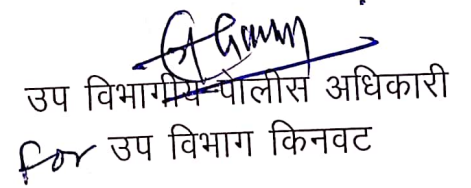 उप विभागीय पोलीस अधिकारी
for उप विभाग किनवट